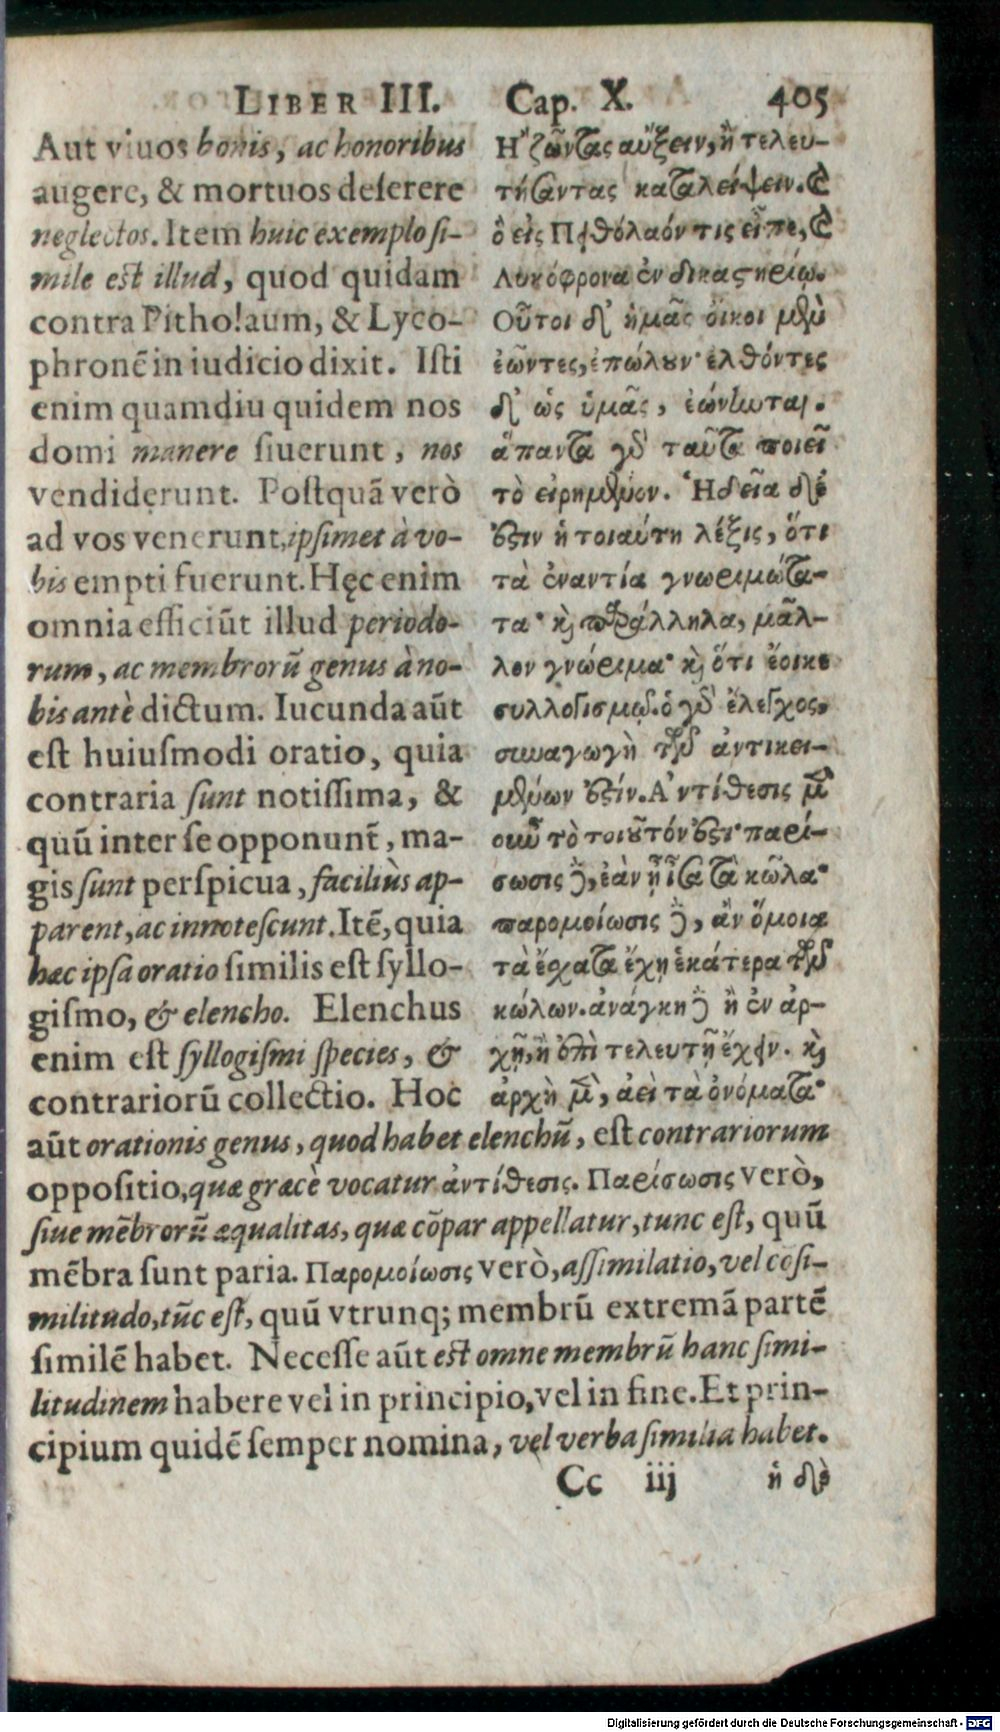 LIBER III. Cap. X. 405
Aut viuos bonis, ac honoribus
augere, & mortuos deserere
neglectos. Item huic exemplo si-
mile est illud, quod quidam
contra Pitholaum, & Lyco-
phronē in iudicio dixit. Isti
enim quamdiu quidem nos
domi manere siuerunt, nos
vendiderunt. Postquā verò
ad vos venerunt, ipsimet à vo-
bis empti fuerunt. Hęc enim
omnia efficiūt illud periodo-
rum, ac membrorū genus à no-
bis antè dictum. Iucunda aūt
est huiusmodi oratio, quia
contraria sunt notissima, &
quū inter se opponunt̄, ma-
gis sunt perspicua, faciliùs ap-
parent, ac innotescunt. Itē, quia
hæc ipsa oratio similis est syllo-
gismo, & elencho. Elenchus
enim est syllogismi species, &
contrariorū collectio. Hoc
Ἢ ζῶντας αὔξειν, ἢ τελευ-
τήσαντας καταλείψειν. καὶ
ὃ εἰς Πειθόλαόν τις εἶπε, καὶ
Λυκόφρονα ἐν δικαστηρίῳ.
Οὗτοι δ' ἡμᾶς οἴκοι μὲν
ἐῶντες, ἐπώλουν· ἐλθόντες
δ' ὡς ὑμᾶς, ἐώνηνται.
ἅπαντα γὰρ ταῦτα ποιεῖ
τὸ εἰρημένον. Ἡδεῖα δέ
ἐστιν ἡ τοιαύτη λέξις, ὅτι
τὰ ἐναντία γνωριμώτα-
τα· καὶ παράλληλα, μᾶλ-
λον γνώριμα· καὶ ὅτι ἔοικε
συλλογισμῷ. ὁ γὰρ ἔλεγχος,
συναγωγὴ τῶν ἀντικει-
μένων ἐστίν. Ἀντίθεσις μὲν
οὖν τὸ τοιοῦτόν ἐστι· παρί-
σωσις δὲ, ἐὰν ᾖ ἴσα τὰ κῶλα·
παρομοίωσις δὲ, ἂν ὅμοια
τὰ ἔσχατα ἔχῃ ἑκάτερα τῶν
κώλων. ἀνάγκη δὲ ἢ ἐν ἀρ-
χῇ, ἢ ἐπὶ τελευτῇ ἔχειν. καὶ
ἀρχὴ μὲν, ἀεὶ τὰ ὀνόματα·
aūt orationis genus, quod habet elenchū, est contrariorum
oppositio, quæ græcè vocatur ἀντίθεσις. Παρίσωσις verò,
siue mēbrorū æqualitas, quæ cōpar appellatur, tunc est, quū
mēbra sunt paria. Παρομοίωσις verò, assimilatio, vel cōsi-
militudo, tūc est, quū vtrunq; membrū extremā partē
similē habet. Necesse aūt est omne membrū hanc simi-
litudinem habere vel in principio, vel in fine. Et prin-
cipium quidē semper nomina, vel verba similia habet.
Cc iij ἡ δὲ
Digitalisierung gefördert durch die Deutsche Forschungsgemeinschaft - DFG